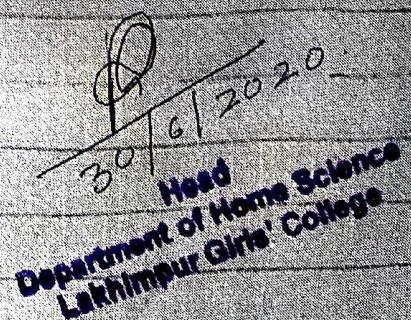 30/6/2020
Head
Department of Home Science
Lakhimpur Girls' College